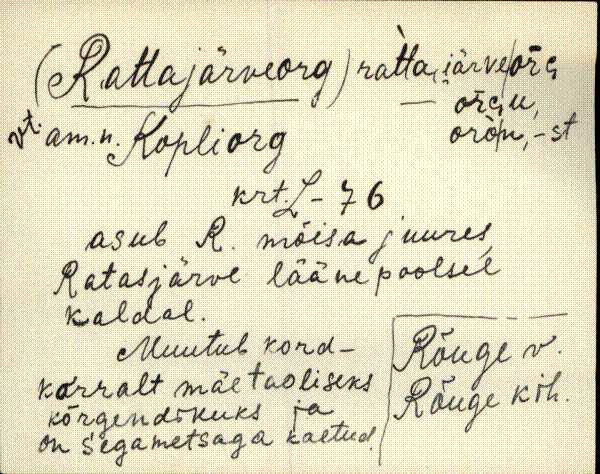 (Rattajärveorg) ràtta,järve/ōrg
— ōrg,u,
vt. am.n. Kopliorg
orò/u,-st
krt. L-76
asub R. mõisa juures,
Ratasjärve läänepoolsel
kaldal.
Muutub kord-
korralt mäetaoliseks
kõrgendikuks ja
on segametsaga kaetud.
Rõuge v.
Rõuge kih.